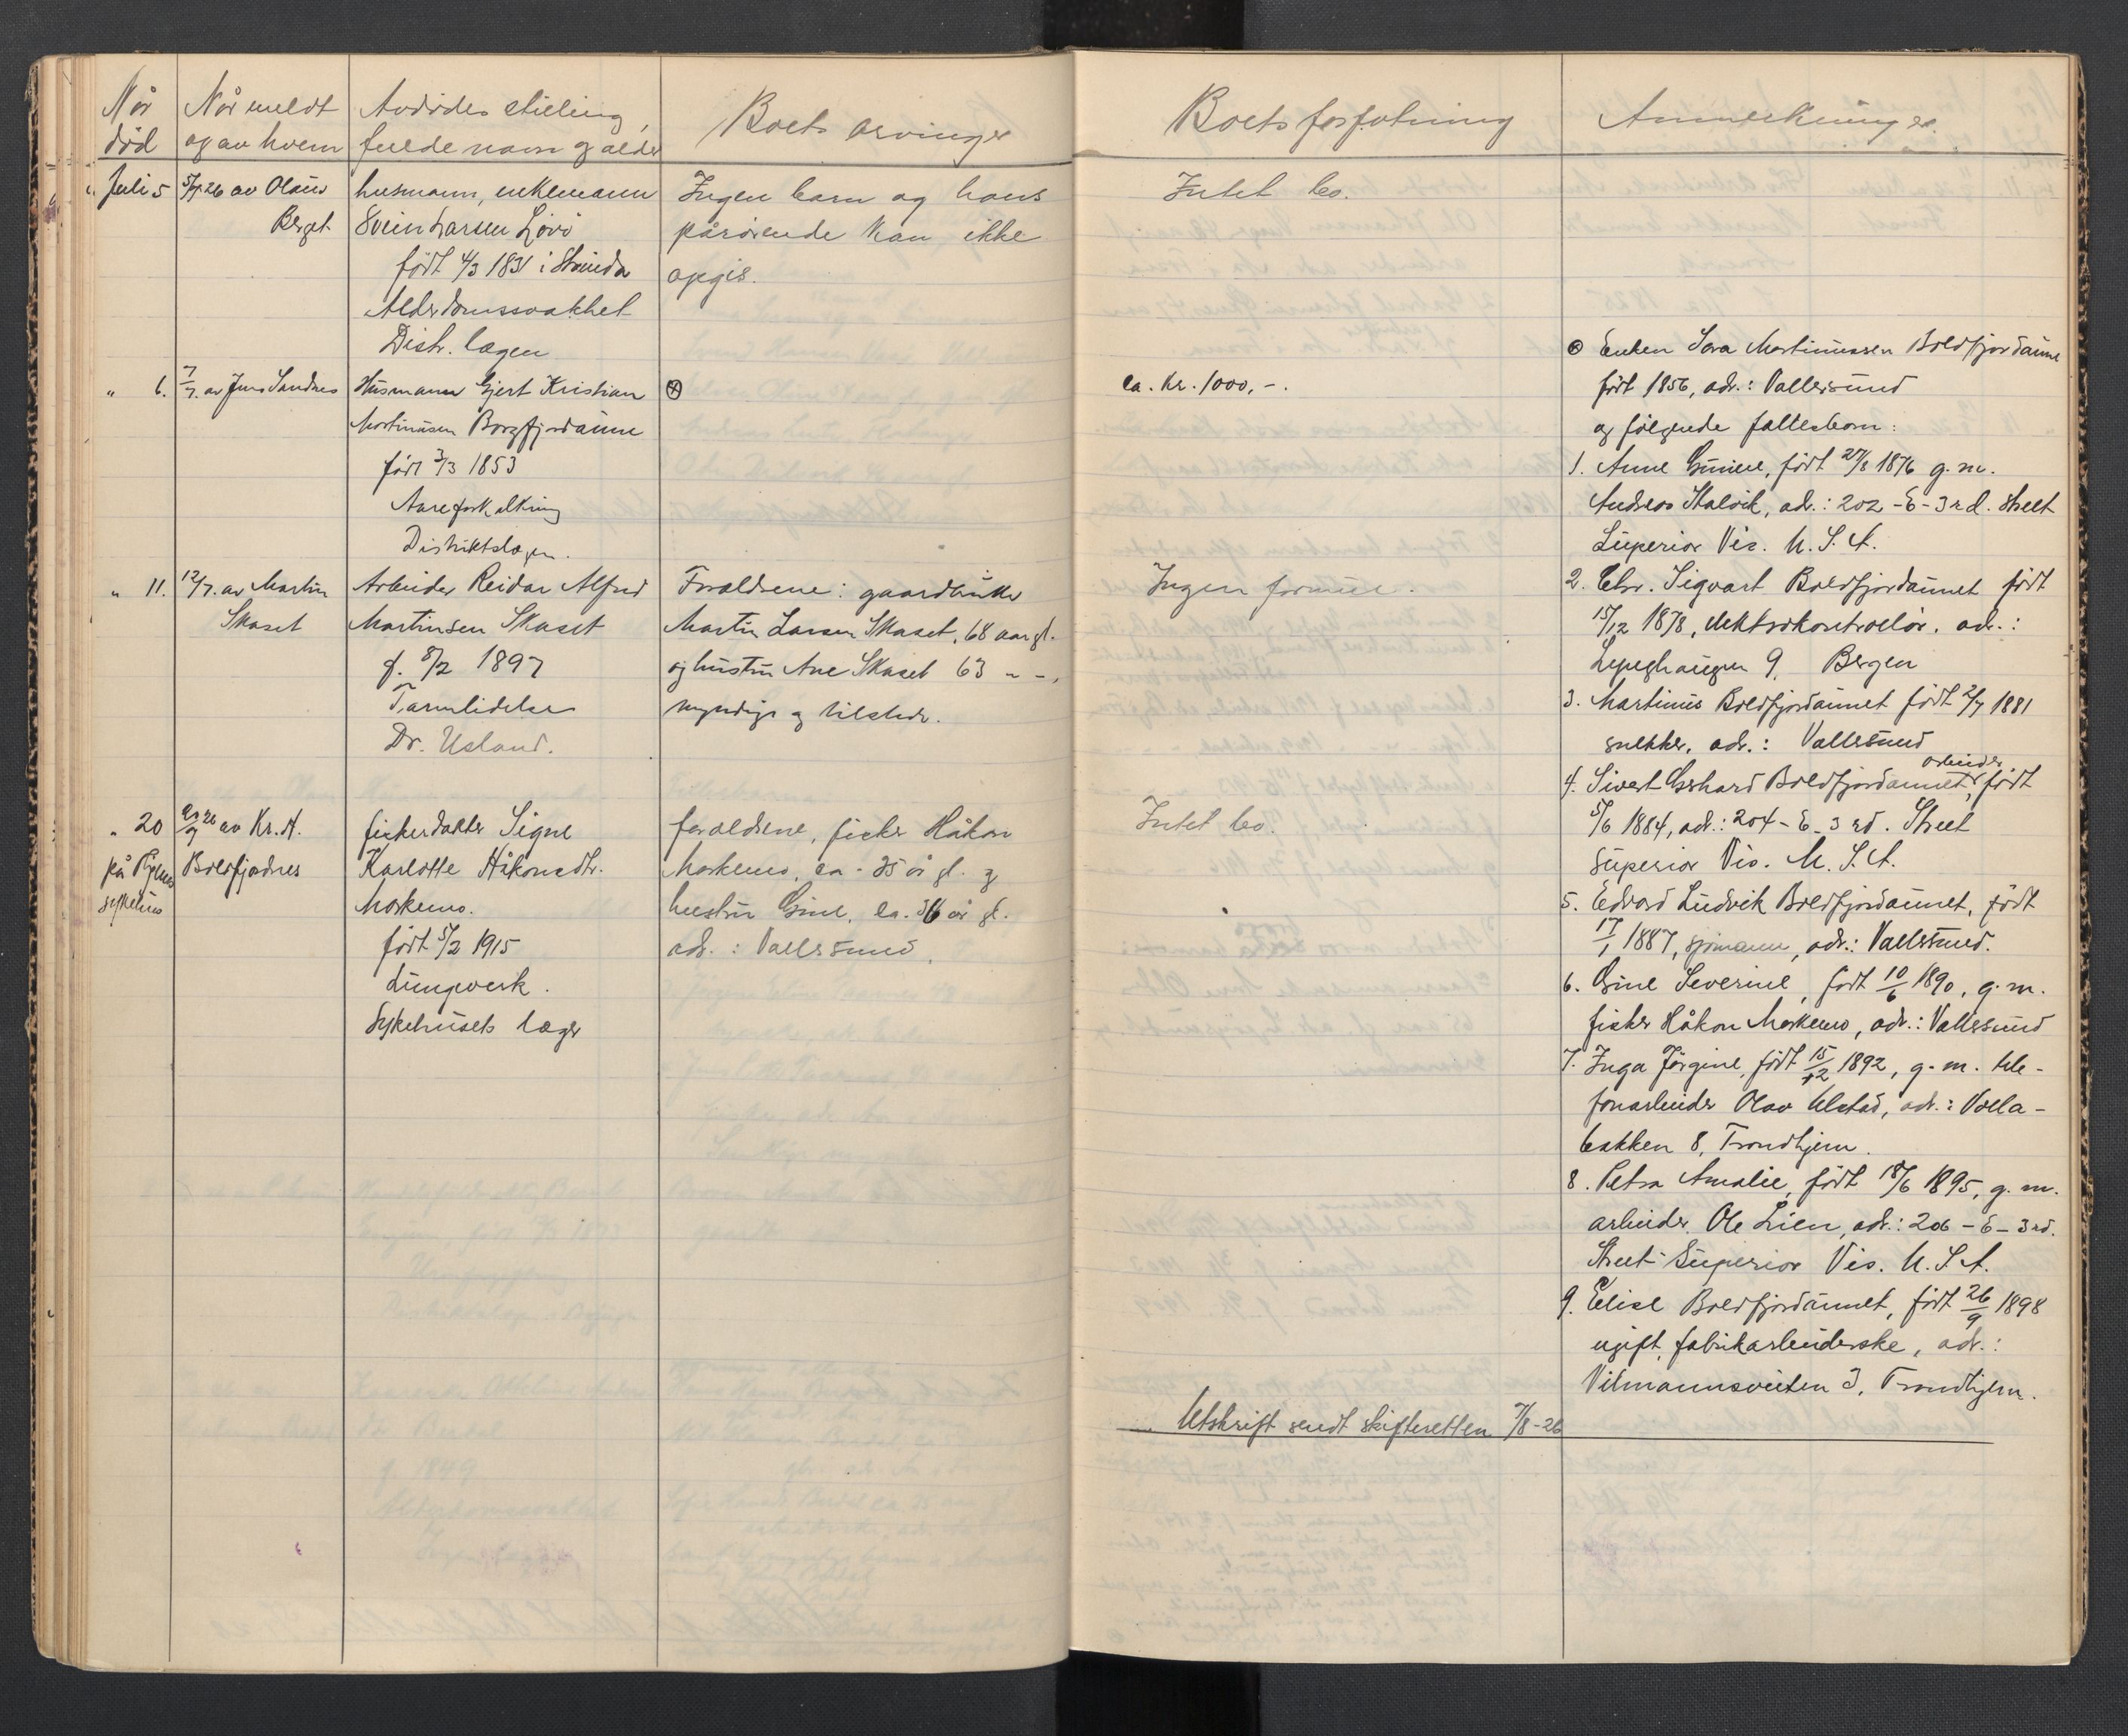 Når død
Når meldt og av hvem
Avdødes stilling, fulde navn og alder
Boets arvinger
Boets forfatning
Anmerkninger.
" Juli 5
5/7 26 av Olaus
Berget
husmann, enkemann
Svein Larsen Lövö
født 4/3 1831 i Strinda
Alderdomssvakhet
Distr. lægen
Ingen barn og hans
pårörende kan ikke
opgis.
Intet bo.
" 6.
7/7. av Jens Sandnes
Husmann Gjert Kristian
Martinusen Borgfjordaune
født 3/3 1853
Aareforkalkning
Distriktslægen.
⊗
ca. kr. 1000,-.
⊗ Enken Sara Martinussen Boldfjordaune
født 1856, adr.: Vallersund
og følgende fællesbarn:
1. Anne Gunine, født 27/8 1876 g. m.
Andreas Stalvik, adr.: 202 - E - 3rd. street
Superior Vis. U. S. A.
2. Chr. Sigvart Boldfjordaunet født
15/12 1878, elektrokontrollør. adr.:
Lyneghaugen 9, Bergen
3. Martinus Boldfjordaunet født 2/7 1881
snekker, adr.: Vallersund
4. Sivert Gerhard Boldfjordaunet, arbeider, født
5/6 1884, adr.: 204 - E - 3rd. Street
Superior Vis. U. S. A.
5. Edvard Ludvik Boldfjordaunet, født
17/1 1887, sjömann, adr.: Vallersund.
6. Gine Severine, født 10/6 1890, g. m.
fisker Håkon Markemo, adr.: Vallersund
7. Inga Jörgine, født 15/12 1892, g. m. tele-
fonarbeider Olav Ulstad, adr.: Volla-
bakken 8, Trondhjem.
8. Petra Amalie, født 18/6 1895, g. m.
arbeider Ole Lien, adr.: 206 - E - 3rd.
Street Superior Vis. U. S. A.
9. Elise Boldfjordaunet, født 26/9 1898
ugift, fabrikarbeiderske, adr.:
Vilmannsveiten 3, Trondhjem.
" 11.
12/7. av Martin
Skaset
Arbeider Reidar Alfred
Martinsen Skaset
f. 8/2 1897
Tarmlidelse
Dr. Usland.
Forældrene: gaardbruker
Martin Larsen Skaset, 68 aar gl.
og hustru Ane Skaset 63 " ",
myndige og tilstede.
Ingen formue.
" 20
på Rigens
sykehus
26 av Kr. A.
Boldfjordnes
fiskerdatter Signe
Karlotte Håkonsdtr.
Markemo.
født 5/2 1915
Lungverk.
Sykehusets læger
forældrene, fisker Håkon
Markemo, ca. 35 år gl. og
hustru Gine, ca. 36 år gl.
adr.: Vallersund.
Intet bo.
Utskrift sendt skifteretten 7/8-26